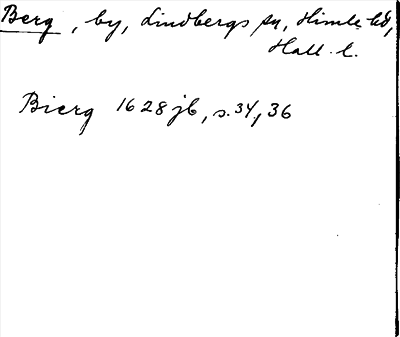 Berg, by, Lindbergs sn, Himle hd,
Hall. l.
Bierg 1628 jb, s. 34, 36